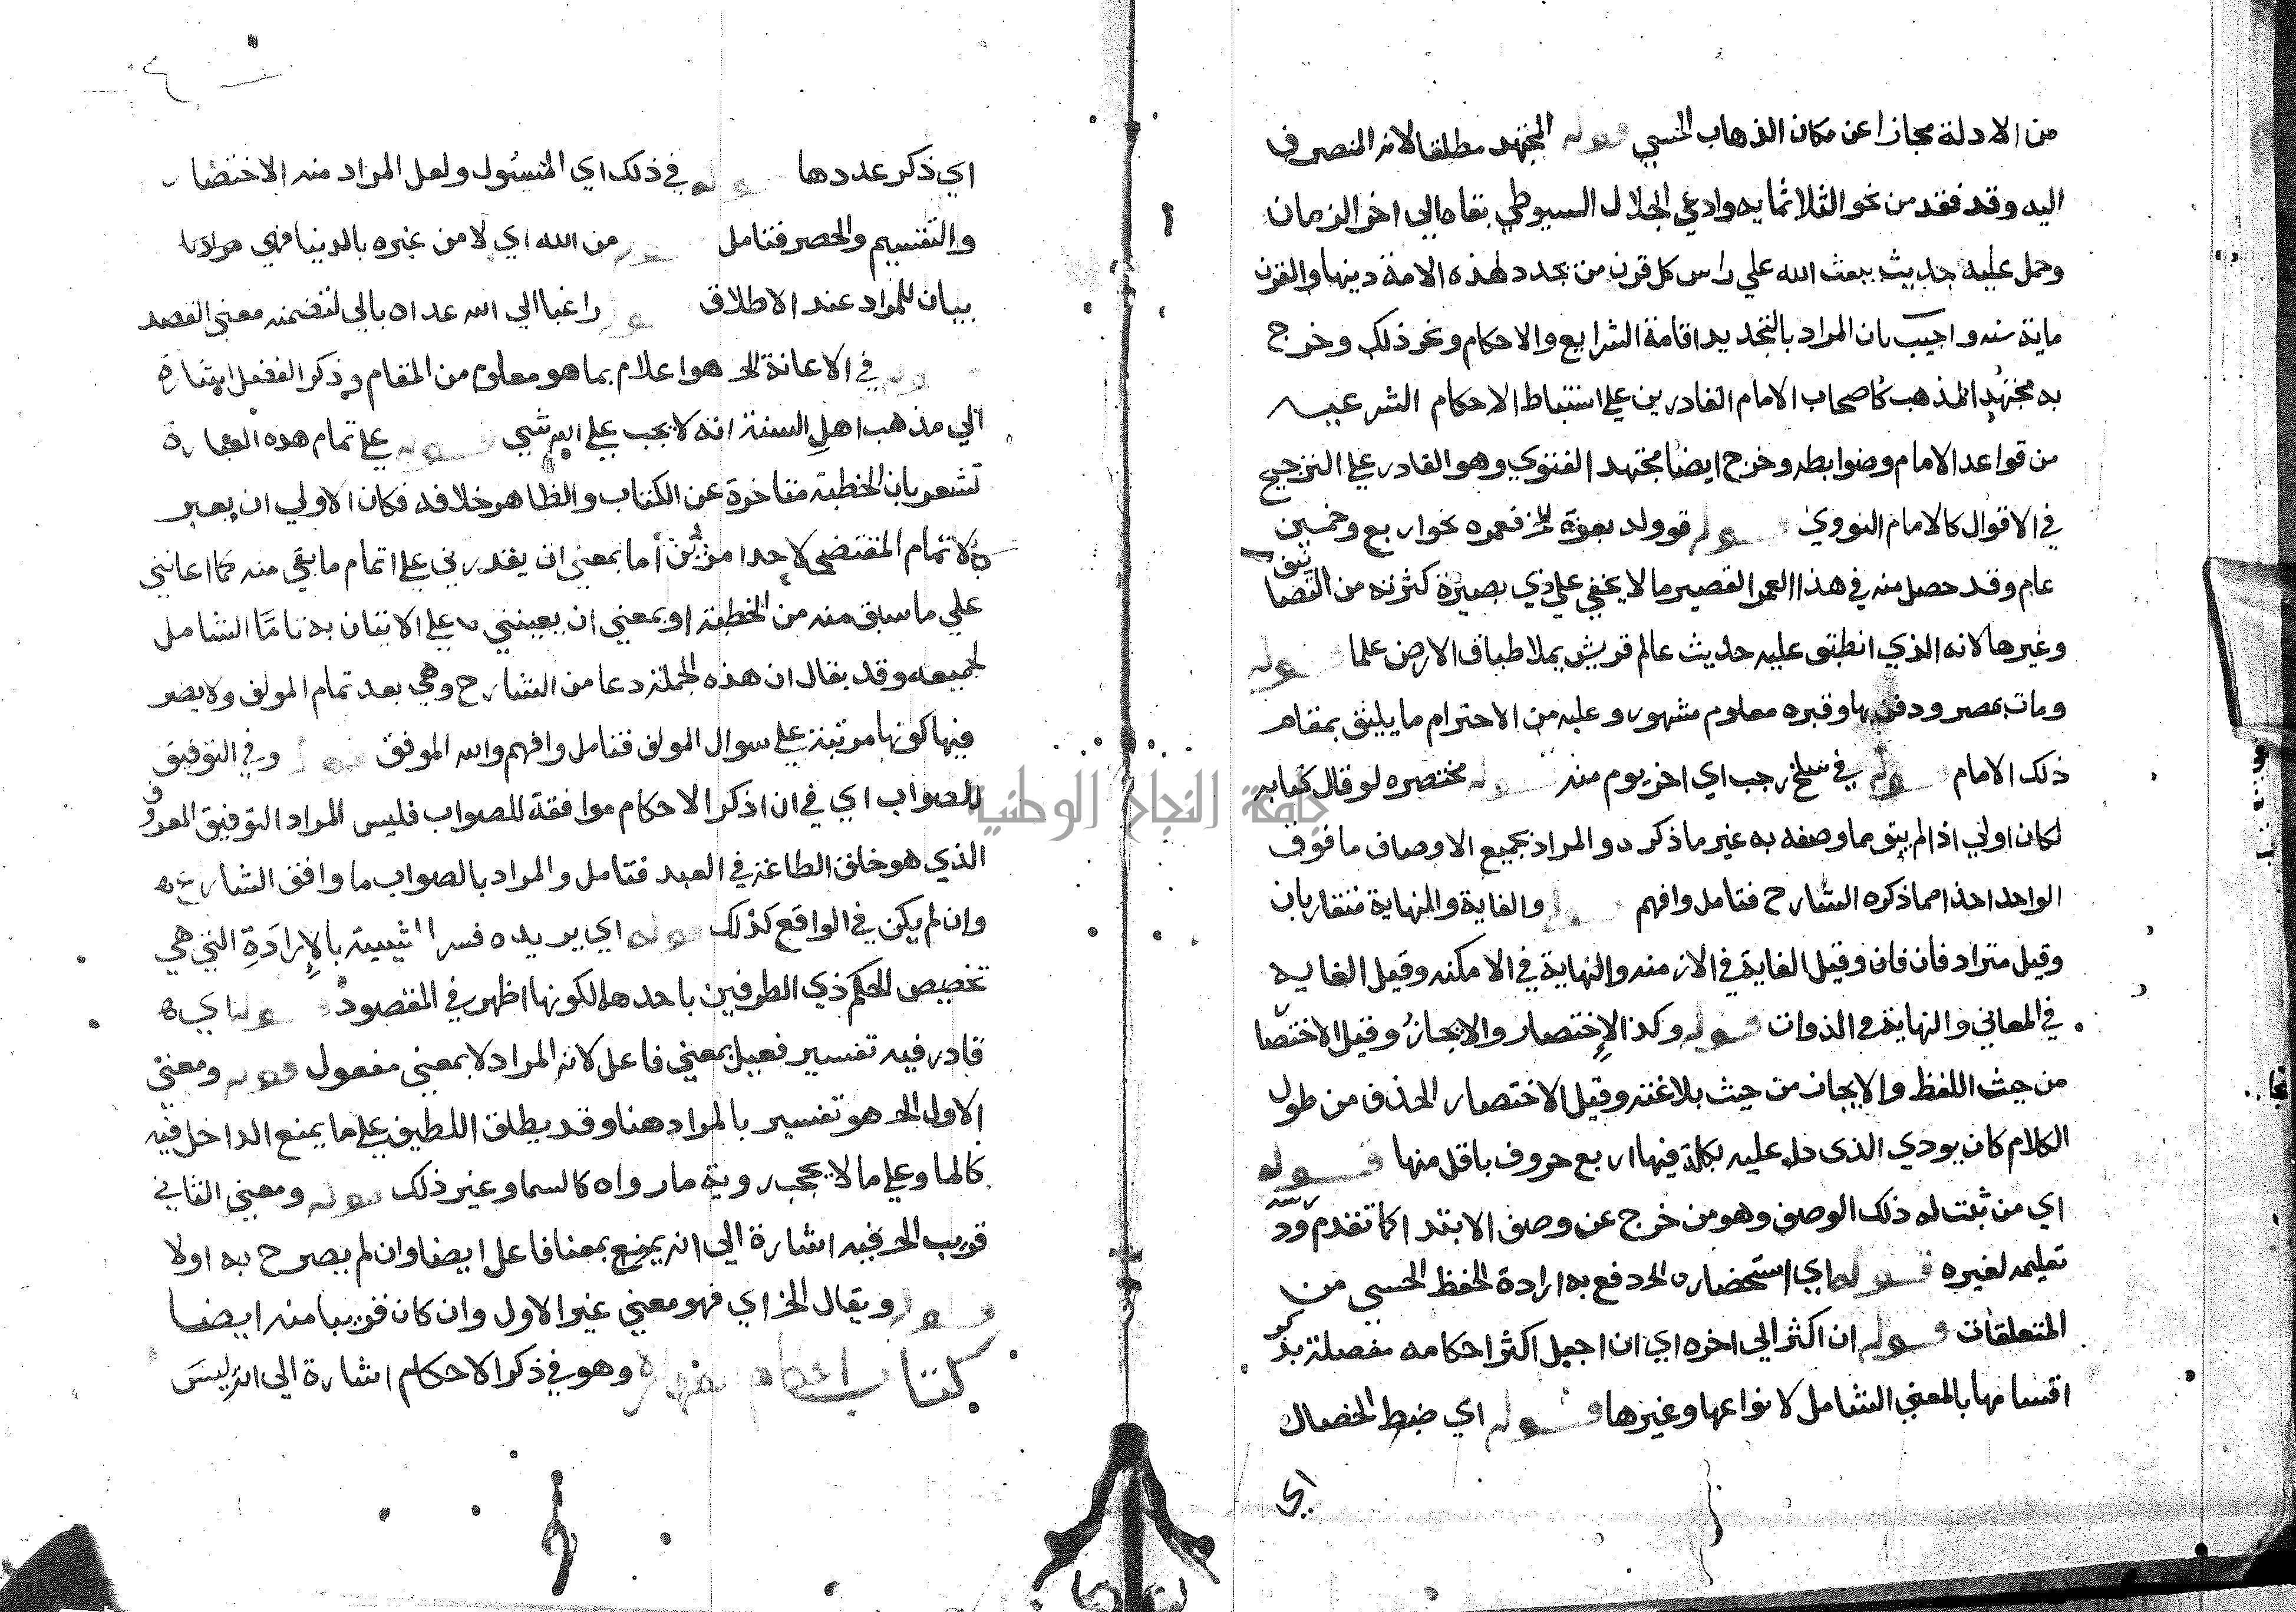 من الادلة مجازا عن مكان الذهاب الحسي قوله المجتهد مطلقا لانه المنصرف
اليه وقد فقد من نحو الثلاثمايه وادعي الجلال السيوطي بقاه الي اخر الزمان
وحمل عليه حديث يبعث الله علي راس كل قرن من يجدد لهذه الامة دينها والقرن
ماية سنه واجيب بان المراد بالتجديد اقامة الشرايع والاحكام ونحو ذلك وخرج
به مجتهد المذهب كاصحاب الامام القادرين علي استنباط الاحكام الشرعيه
من قواعد الامام وضوابطه وخرج ايضا مجتهد الفتوي وهو القادر علي الترجيح
في الاقوال كالامام النووي قوله وولد بغزة الخ فعمره نحو اربع وخمسين
عام وقد حصل منه في هذا العمر القصير ما لا يخفي علي ذي بصيرة كثرته من التصانيف
وغيرها لانه الذي انطبق عليه حديث عالم قريش يملا طباق الارض علما قوله
ومات بمصر ودفن بها وقبره معلوم مشهور وعليه من الاحترام ما يليق بمقام
ذلك الامام قوله في سلخ رجب اي اخر يوم منه قوله مختصره لو قال كتابه
لكان اولي اذ لم يبق مما وصفه به غير ما ذكر والمراد بجميع الاوصاف ما فوق
الواحد اخذا مما ذكره الشارح فتامل وافهم قوله والغاية والنهاية متقاربان
وقيل مترادفان فان وقيل الغاية في الازمنه والنهاية في الامكنه وقيل الغايه
في المعاني والنهاية في الذوات قوله وكذا الاختصار والايجاز وقيل الاختصا
من حيث اللفظ والايجاز من حيث بلاغته وقيل الاختصار الحذف من طول
الكلام كان يودي الذي دل عليه بكلمة فيها اربع حروف باقل منها قوله
اي من ثبت له ذلك الوصف وهو من خرج عن وصف الابتدا كما تقدم ودرسه
تعليمه لغيره قوله اي استحضاره الخ دفع به ارادة الحفظ الحسي من
المتعلقات قوله ان اكثر الي اخره اي ان اجعل اكثر احكامه مفصلة بذكر
اقسامها بالمعني الشامل لانواعها وغيرها قوله اي ضبط الخصال
اي
اي ذكر عددها قوله في ذلك اي المسُول ولعل المراد منه الاختصار
والتقسيم والحصر فتامل قوله من الله اي لا من غيره بالدنيا فهي
بيان للمراد عند الاطلاق قوله راغبا الي الله عداه بالي لتضمنه معني القصد
قوله في الاعانة الخ هو اعلام بما هو معلوم من المقام وذكر الفضل اشارة
الي مذهب اهل السنة انه لا يجب علي الله شي قوله علي تمام هذه العبارة
تشعر بان الخطبة متاخرة عن الكتاب والظاهر خلافه فكان الاولي ان يعبر
بالاتمام المقتضي لاحد امرين اما بمعني ان يقدرني علي اتمام ما بقي منه كما اعانني
علي ما سبق منه من الخطبة او بمعني ان يعينني علي الاتيان به تامًا الشامل
لجميعه وقد يقال ان هذه الجملة دعا من الشارح وهي بعد تمام المولف ولا يضر
فيها كونها مرتبة علي سوال المولف فتامل وافهم والله الموفق قوله وفي التوفيق
للصواب اي في ان اذكر الاحكام موافقة للصواب فليس المراد التوفيق المعروف
الذي هو خلق الطاعة في العبد فتامل والمراد بالصواب ما وافق الشارع
وان لم يكن في الواقع كذلك قوله اي يريده فسر المشيية بالإرادَةِ التي هي
تخصيص الحكم ذي الطرفين باحدهما لكونها اظهر في المقصود قوله اي
قادر فيه تفسير فعيل بمعني فاعل لانه المراد لا بمعني مفعول قوله ومعني
الاول الخ هو تفسير بالمراد هنا وقد يطلق اللطيف علي ما يمنع الداخل فيه
كالما وعلي ما لا يحجب روية ما رواه كالسما وغير ذلك قوله ومعني الثاني
قريب الخ فيه اشارة الي انه بمعنا فاعل ايضا وان لم يصرح به اولا
قوله ويقال الخ اي فهو معني غير الاول وان كان قريبا منه ايضا
كتاب احكام الطهارة وهو في ذكر الاحكام اشارة الي انه ليس
جامعة النجاح الوطنية